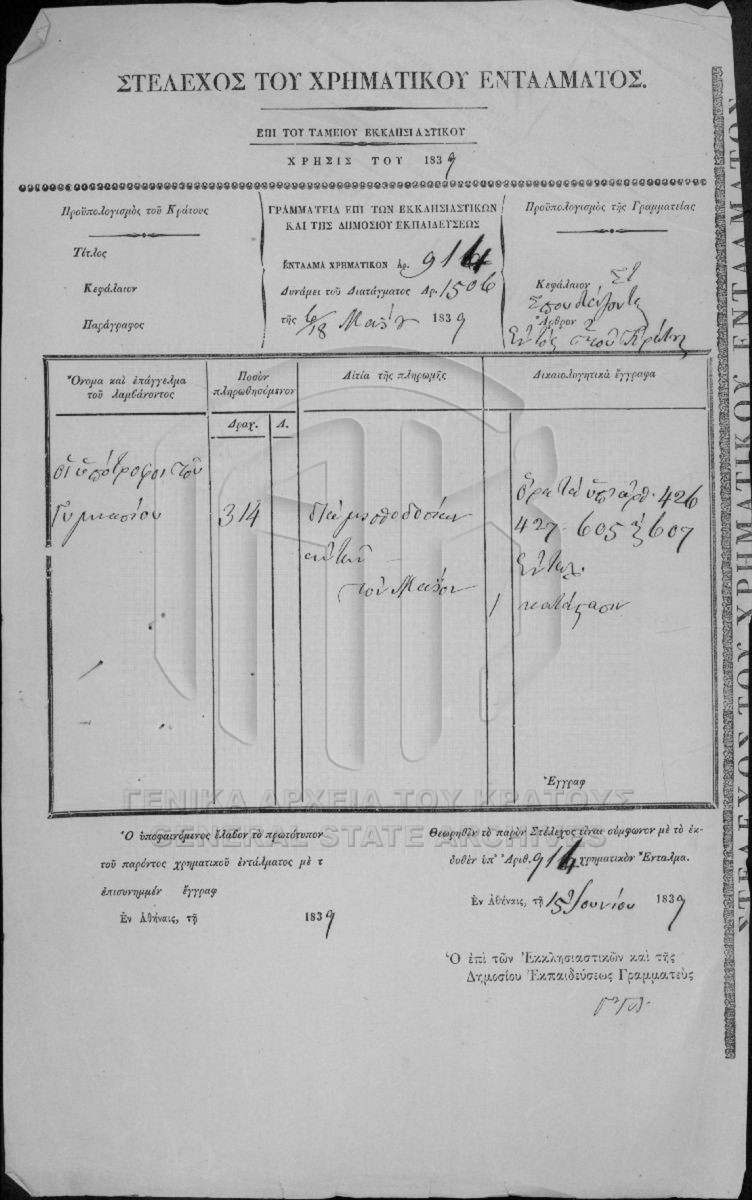 ΣΤΕΛΕΧΟΣ ΤΟΥ ΧΡΗΜΑΤΙΚΟΥ ΕΝΤΑΛΜΑΤΟΣ.
ΕΠΙ ΤΟΥ ΤΑΜΕΙΟΥ ΕΚΚΛΗΣΙΑΣΤΙΚΟΥ
ΧΡΗΣΙΣ ΤΟΥ 1839
Προϋπολογισμὸς τοῦ Κράτους
Τίτλος
Κεφάλαιον
Παράγραφος
ΓΡΑΜΜΑΤΕΙΑ ΕΠΙ ΤΩΝ ΕΚΚΛΗΣΙΑΣΤΙΚΩΝ
ΚΑΙ ΤΗΣ ΔΗΜΟΣΙΟΥ ΕΚΠΑΙΔΕΥΣΕΩΣ
ΕΝΤΑΛΜΑ ΧΡΗΜΑΤΙΚΟΝ ἀρ. 914
Δυνάμει τοῦ Διατάγματος Αρ. 1506
τῆς 6/18 Μαΐου 1839
Προϋπολογισμὸς τῆς Γραμματείας
Κεφάλαιον
Ἄρθρον 2
Ὄνομα καὶ ἐπάγγελμα
τοῦ λαμβάνοντος
Ποσὸν
πληρωθησόμενον
Δραχ. Λ.
Αἰτία τῆς πληρωμῆς
Δικαιολογητικὰ ἔγγραφα
οἱ ὑπότροφοι τοῦ
Γυμνασίου
314
διὰ μισθοδοσίαν
αὐτῶν
τὸν Μάϊον
ὅρα τὰ ὑπ' ἀρθ. 426
427 - 605 ἢ 607
ἐνταλ.
1 κατάστασιν
Ἔγγραφ
Ὁ ὑποφαινόμενος ἔλαβον τὸ πρωτότυπον
τοῦ παρόντος χρηματικοῦ ἐντάλματος μὲ τ
ἐπισυνημμέν ἔγγραφ
Ἐν Ἀθήναις, τῇ 1839
Θεωρηθὲν τὸ παρὸν Στέλεχος εἶναι σύμφωνον μὲ τὸ ἐκ-
δοθὲν ὑπ' Ἀριθ. 914 χρηματικὸν Ἔνταλμα.
Ἐν Ἀθήναις, τῇ 15 Ἰουνίου 1839
Ὁ ἐπὶ τῶν Ἐκκλησιαστικῶν καὶ τῆς
Δημοσίου Ἐκπαιδεύσεως Γραμματεὺς
ΓΕΝΙΚΑ ΑΡΧΕΙΑ ΤΟΥ ΚΡΑΤΟΥΣ
GENERAL STATE ARCHIVES
ΣΤΕΛΕΧΟΣ ΤΟΥ ΧΡΗΜΑΤΙΚΟΥ ΕΝΤΑΛΜΑΤΟΣ